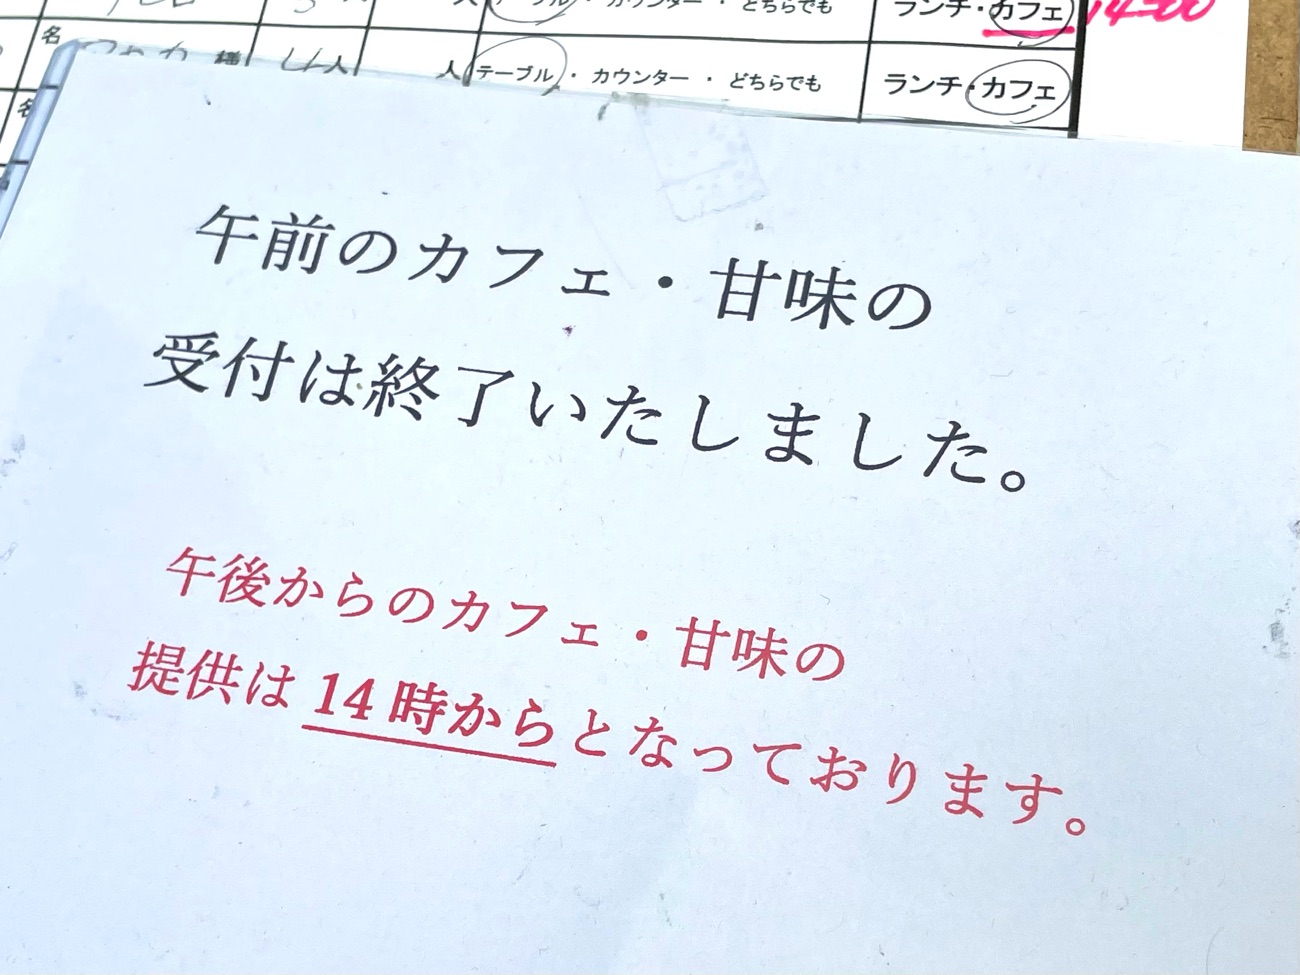 人 テーブル ・ カウンター ・ どちらでも ランチ・カフェ 14:00
名 様 4人 人 テーブル ・ カウンター ・ どちらでも ランチ・カフェ
名
午前のカフェ・甘味の
受付は終了いたしました。
午後からのカフェ・甘味の
提供は 14 時からとなっております。